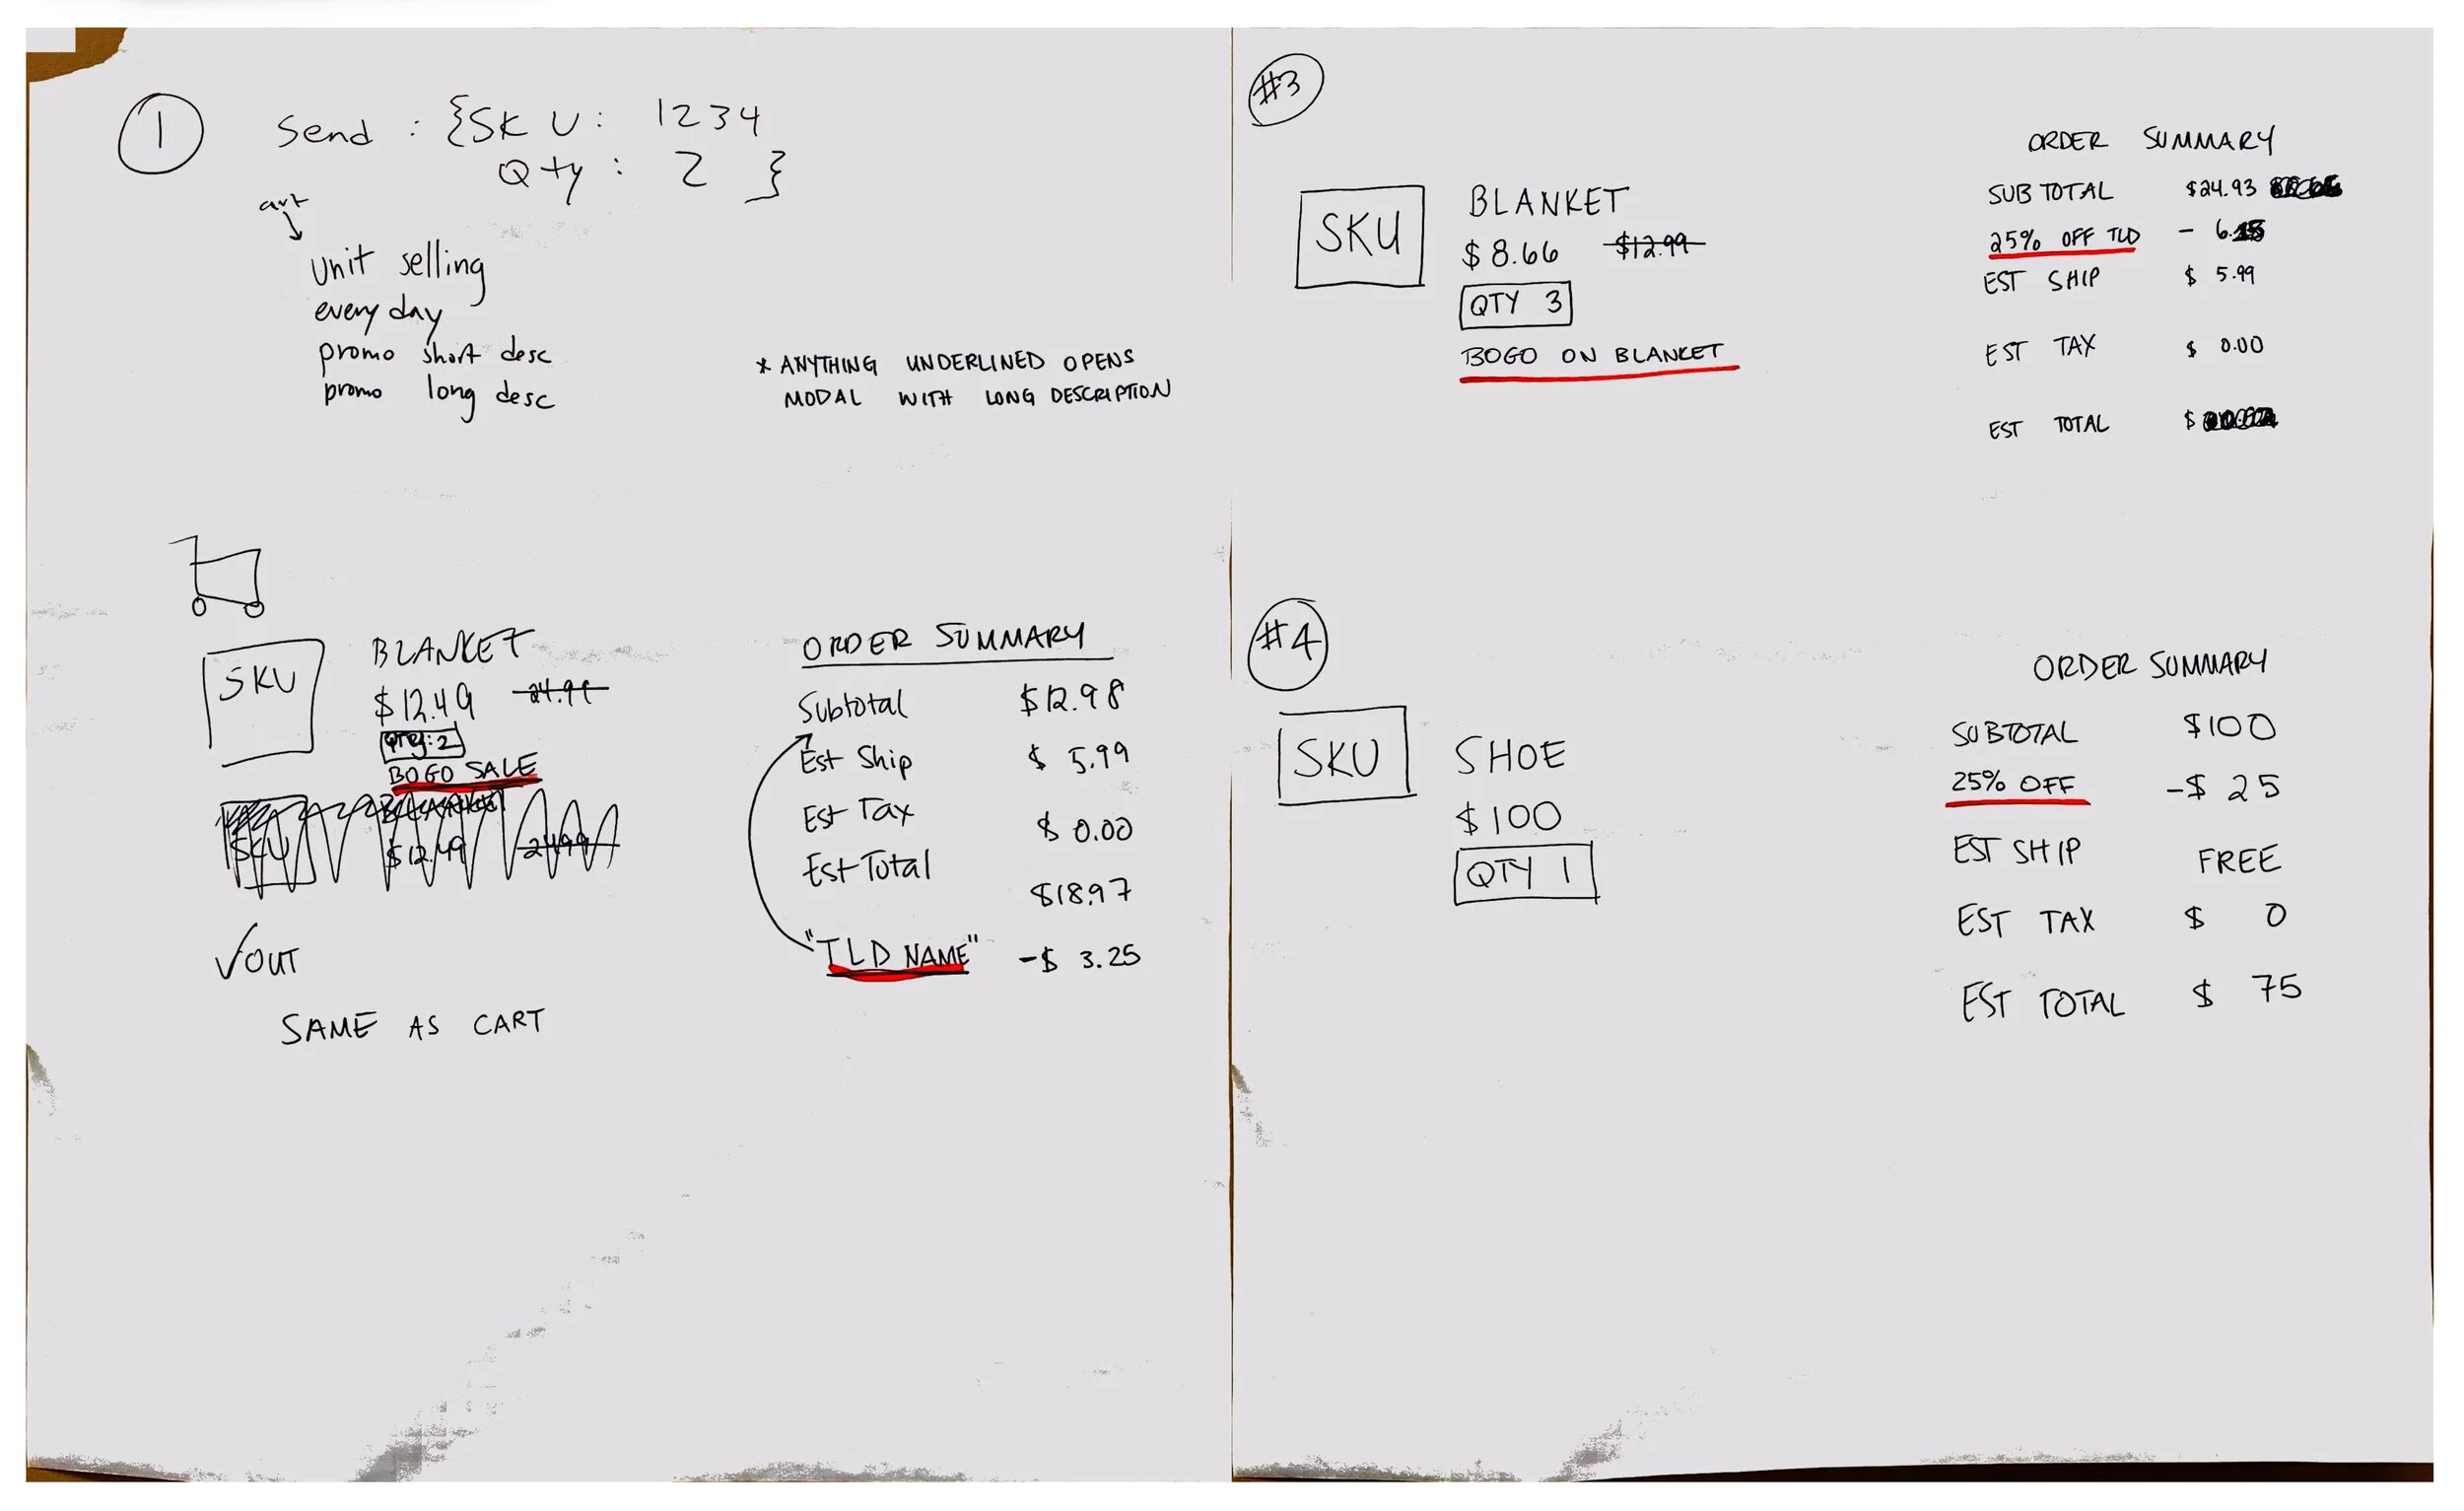 1
Send : {SKU: 1234
Qty : 2 }
Unit selling
every day
promo short desc
promo long desc
* ANYTHING UNDERLINED OPENS
MODAL WITH LONG DESCRIPTION
SKU
BLANKET
$12.49 24.99
QTY: 2
BOGO SALE
SKU
$12.49 24.99
✓OUT
SAME AS CART
ORDER SUMMARY
Subtotal $12.98
Est Ship $ 5.99
Est Tax $ 0.00
Est Total $18.97
"TLD NAME" -$ 3.25
#3
SKU
BLANKET
$8.66 $12.99
QTY 3
BOGO ON BLANKET
ORDER SUMMARY
SUBTOTAL $24.93
25% OFF TLD -
EST SHIP $ 5.99
EST TAX $ 0.00
EST TOTAL $
#4
SKU
SHOE
$100
QTY 1
ORDER SUMMARY
SUBTOTAL $100
25% OFF -$ 25
EST SHIP FREE
EST TAX $ 0
EST TOTAL $ 75